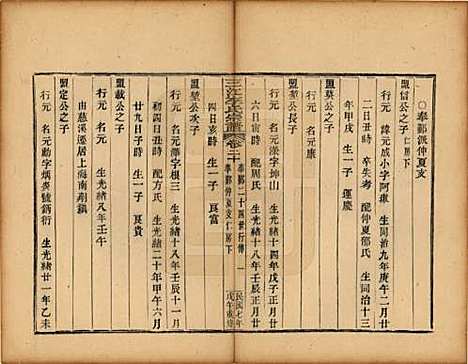 ○奉鄞派仲夏支
仁房下
盟信公之子
行元 諱元成小字阿慷 生同治九年庚午二月廿
二日丑時 卒失考 配仲夏鄔氏 生同治十三
年甲戌 生一子 運慶
盟莫公之子
行元 名元康
盟堃公長子
行元 名元漾字坤山 生光緒十四年戊子正月廿
六日寅時 配周氏 生光緒十八年壬辰正月廿
四日亥時 生一子 良富
三江李氏宗譜 卷二十 奉鄞二十四世行傳 一
奉鄞仲夏支仁房下
民國七年
戊午重修
盟堃公次子
行元 名元瀚字根三 生光緒十八年壬辰十一月
初四日丑時 配方氏 生光緒二十年甲午六月
廿九日子時 生一子 良貴
盟載公之子
行元 名元 生光緒八年壬午
由慈溪遷居上海南翔鎮
盟定公之子
行元 名元勳字炳炎號炳衍 生光緒廿一年乙未